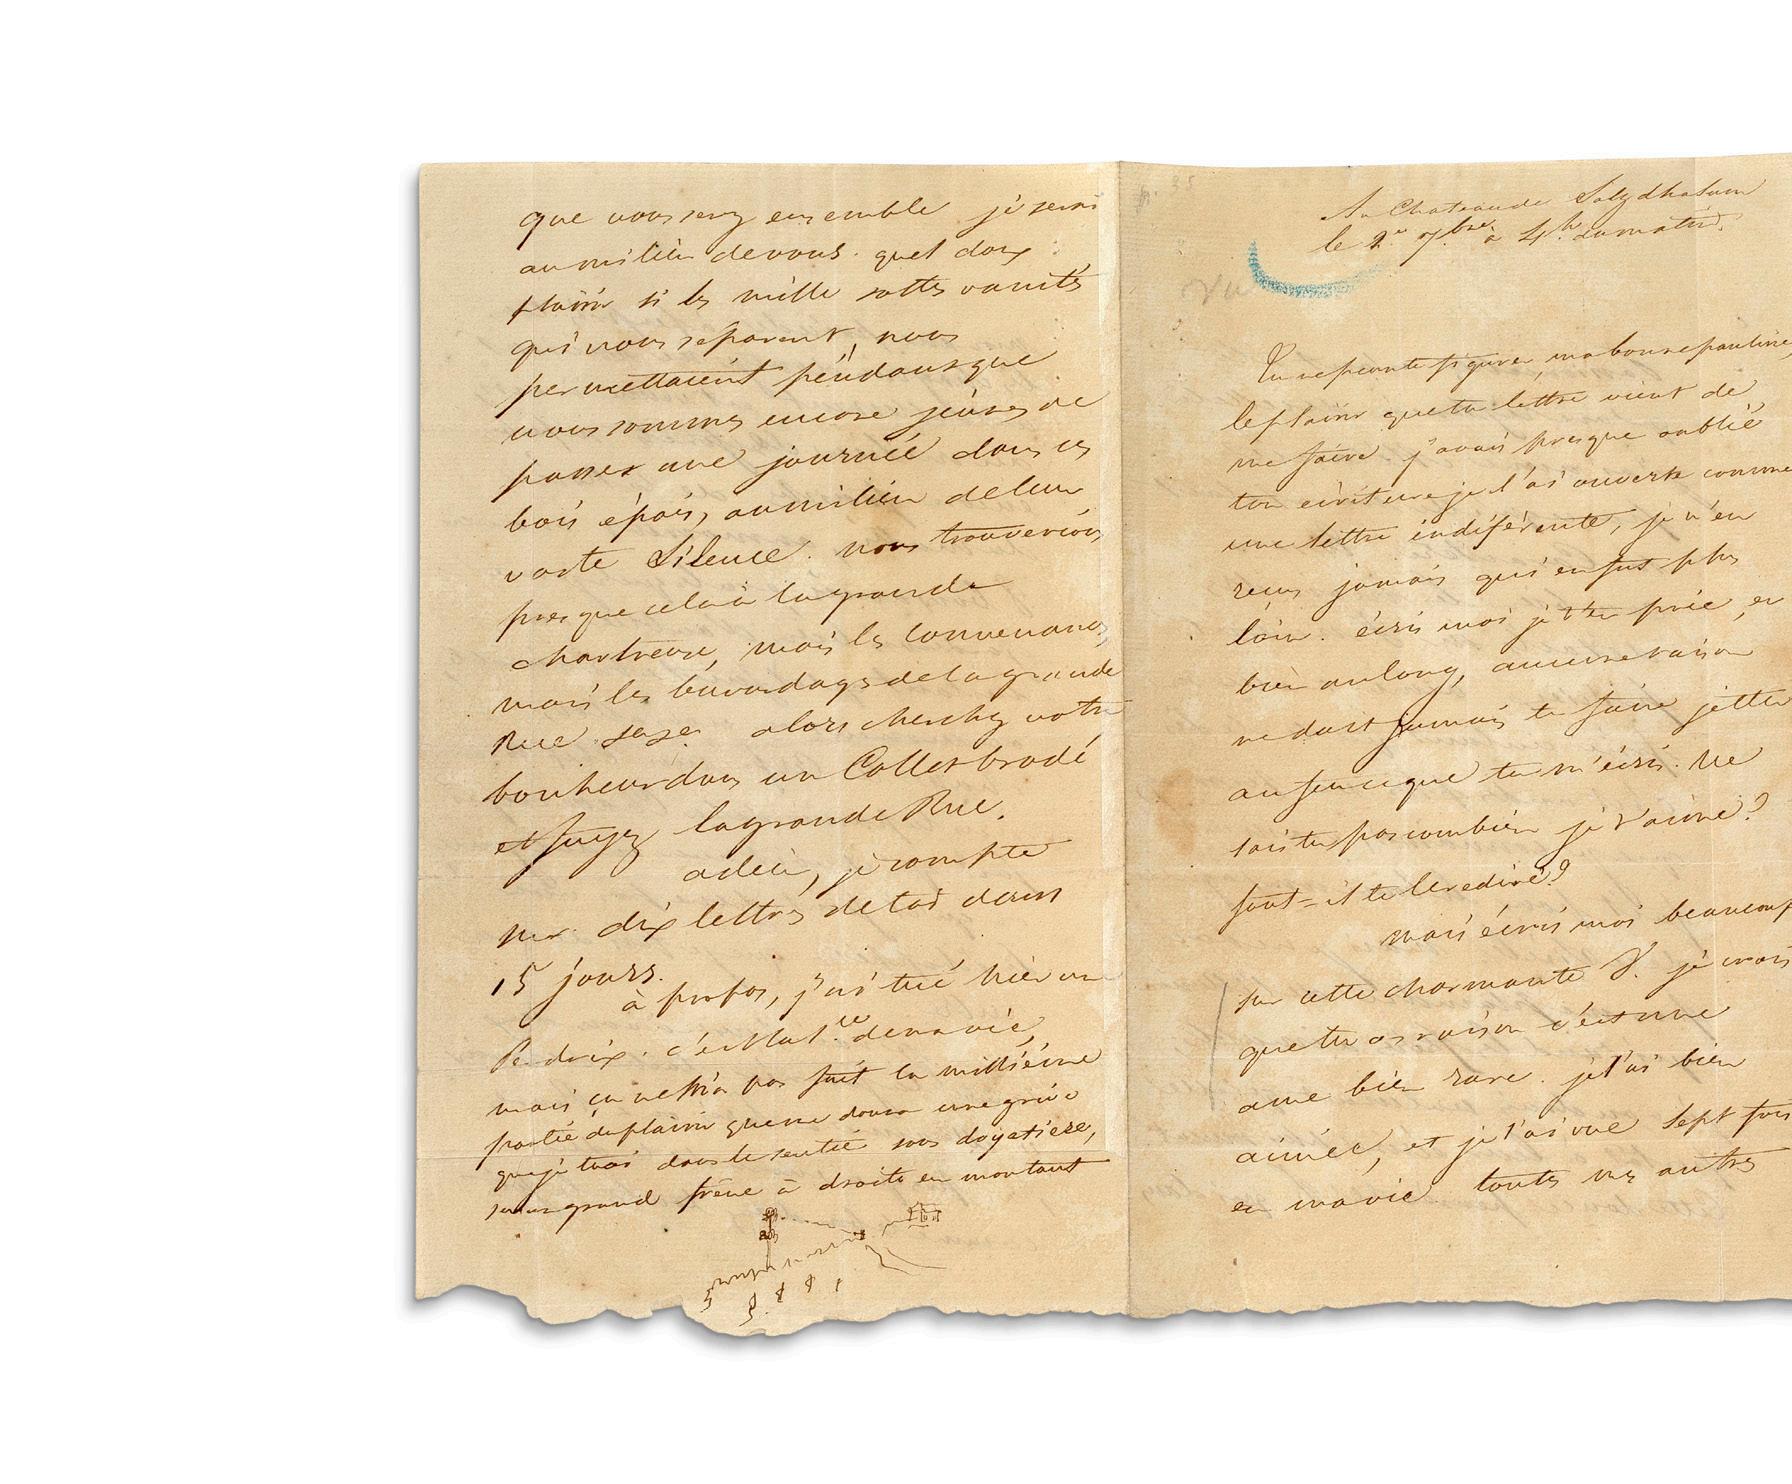 que vous serez ensemble je serai
au milieu de vous. quel doux
plaisir si les mille sottes vanités
qui nous séparent, nous
permettaient pendant que
nous sommes encore jeunes de
passer une journée dans ces
bois épais, au milieu de leur
vaste Silence. nous trouverions
presque cela à la grande
chartreuse, mais les convenances,
mais les bavardages de la grande
Rue
alors cherchez votre
bonheur dans un Collet brodé
et fuyez la grande Rue.
adieu, je compte
sur dix lettres de toi dans
15 jours.
à propos, j'ai tué hier un
Perdrix. c'est la 1.ere de ma vie,
mais ça ne m'a pas fait la millième
partie du plaisir que me donna une grive
que je tuai dans le sentier sous doyatiere,
sur un grand frêne à droite en montant
p. 35
Au Chateau de
le 2.e 7bre à 4h. du matin.
Vu
Tu ne peux te figurer, ma bonne pauline
le plaisir que ta lettre vient de
me faire j'avais presque oublié
ton ecriture je l'ai ouverte comme
une lettre indiférente, je n'en
reçus jamais qui en fut plus
loin. écris moi je t'en prie, et
bien au long, aucune raison
ne doit jamais te faire jetter
au feu ce que tu m'écris. Ne
sais tu pas combien je t'aime?
faut-il te le redire?
mais écris moi beaucoup
sur cette charmante V. je crois
que tu as raison c'est une
ame bien rare. je l'ai bien
aimée, et je l'ai vue sept fois
en ma vie. toutes mes autres